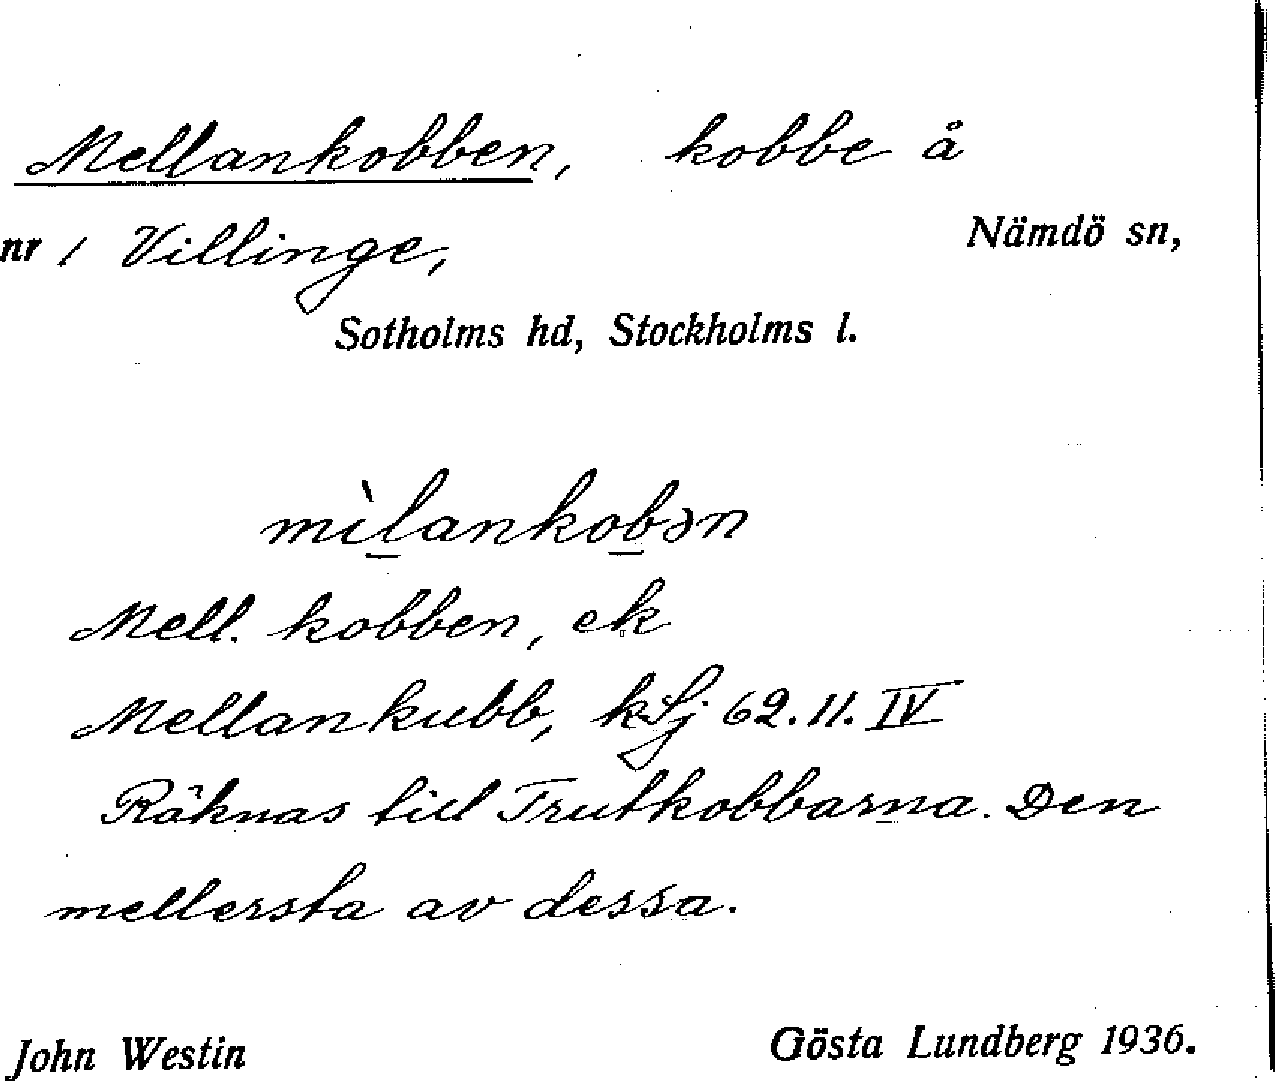 Mellankobben, kobbe å
nr 1 Villinge, Nämdö sn,
Sotholms hd, Stockholms l.
mìl̲ankob̲ən
Mell. kobben, ek
Mellankubb, ksj 62.11.IV
Räknas till Trutkobbarna. Den
mellersta av dessa.
John Westin Gösta Lundberg 1936.